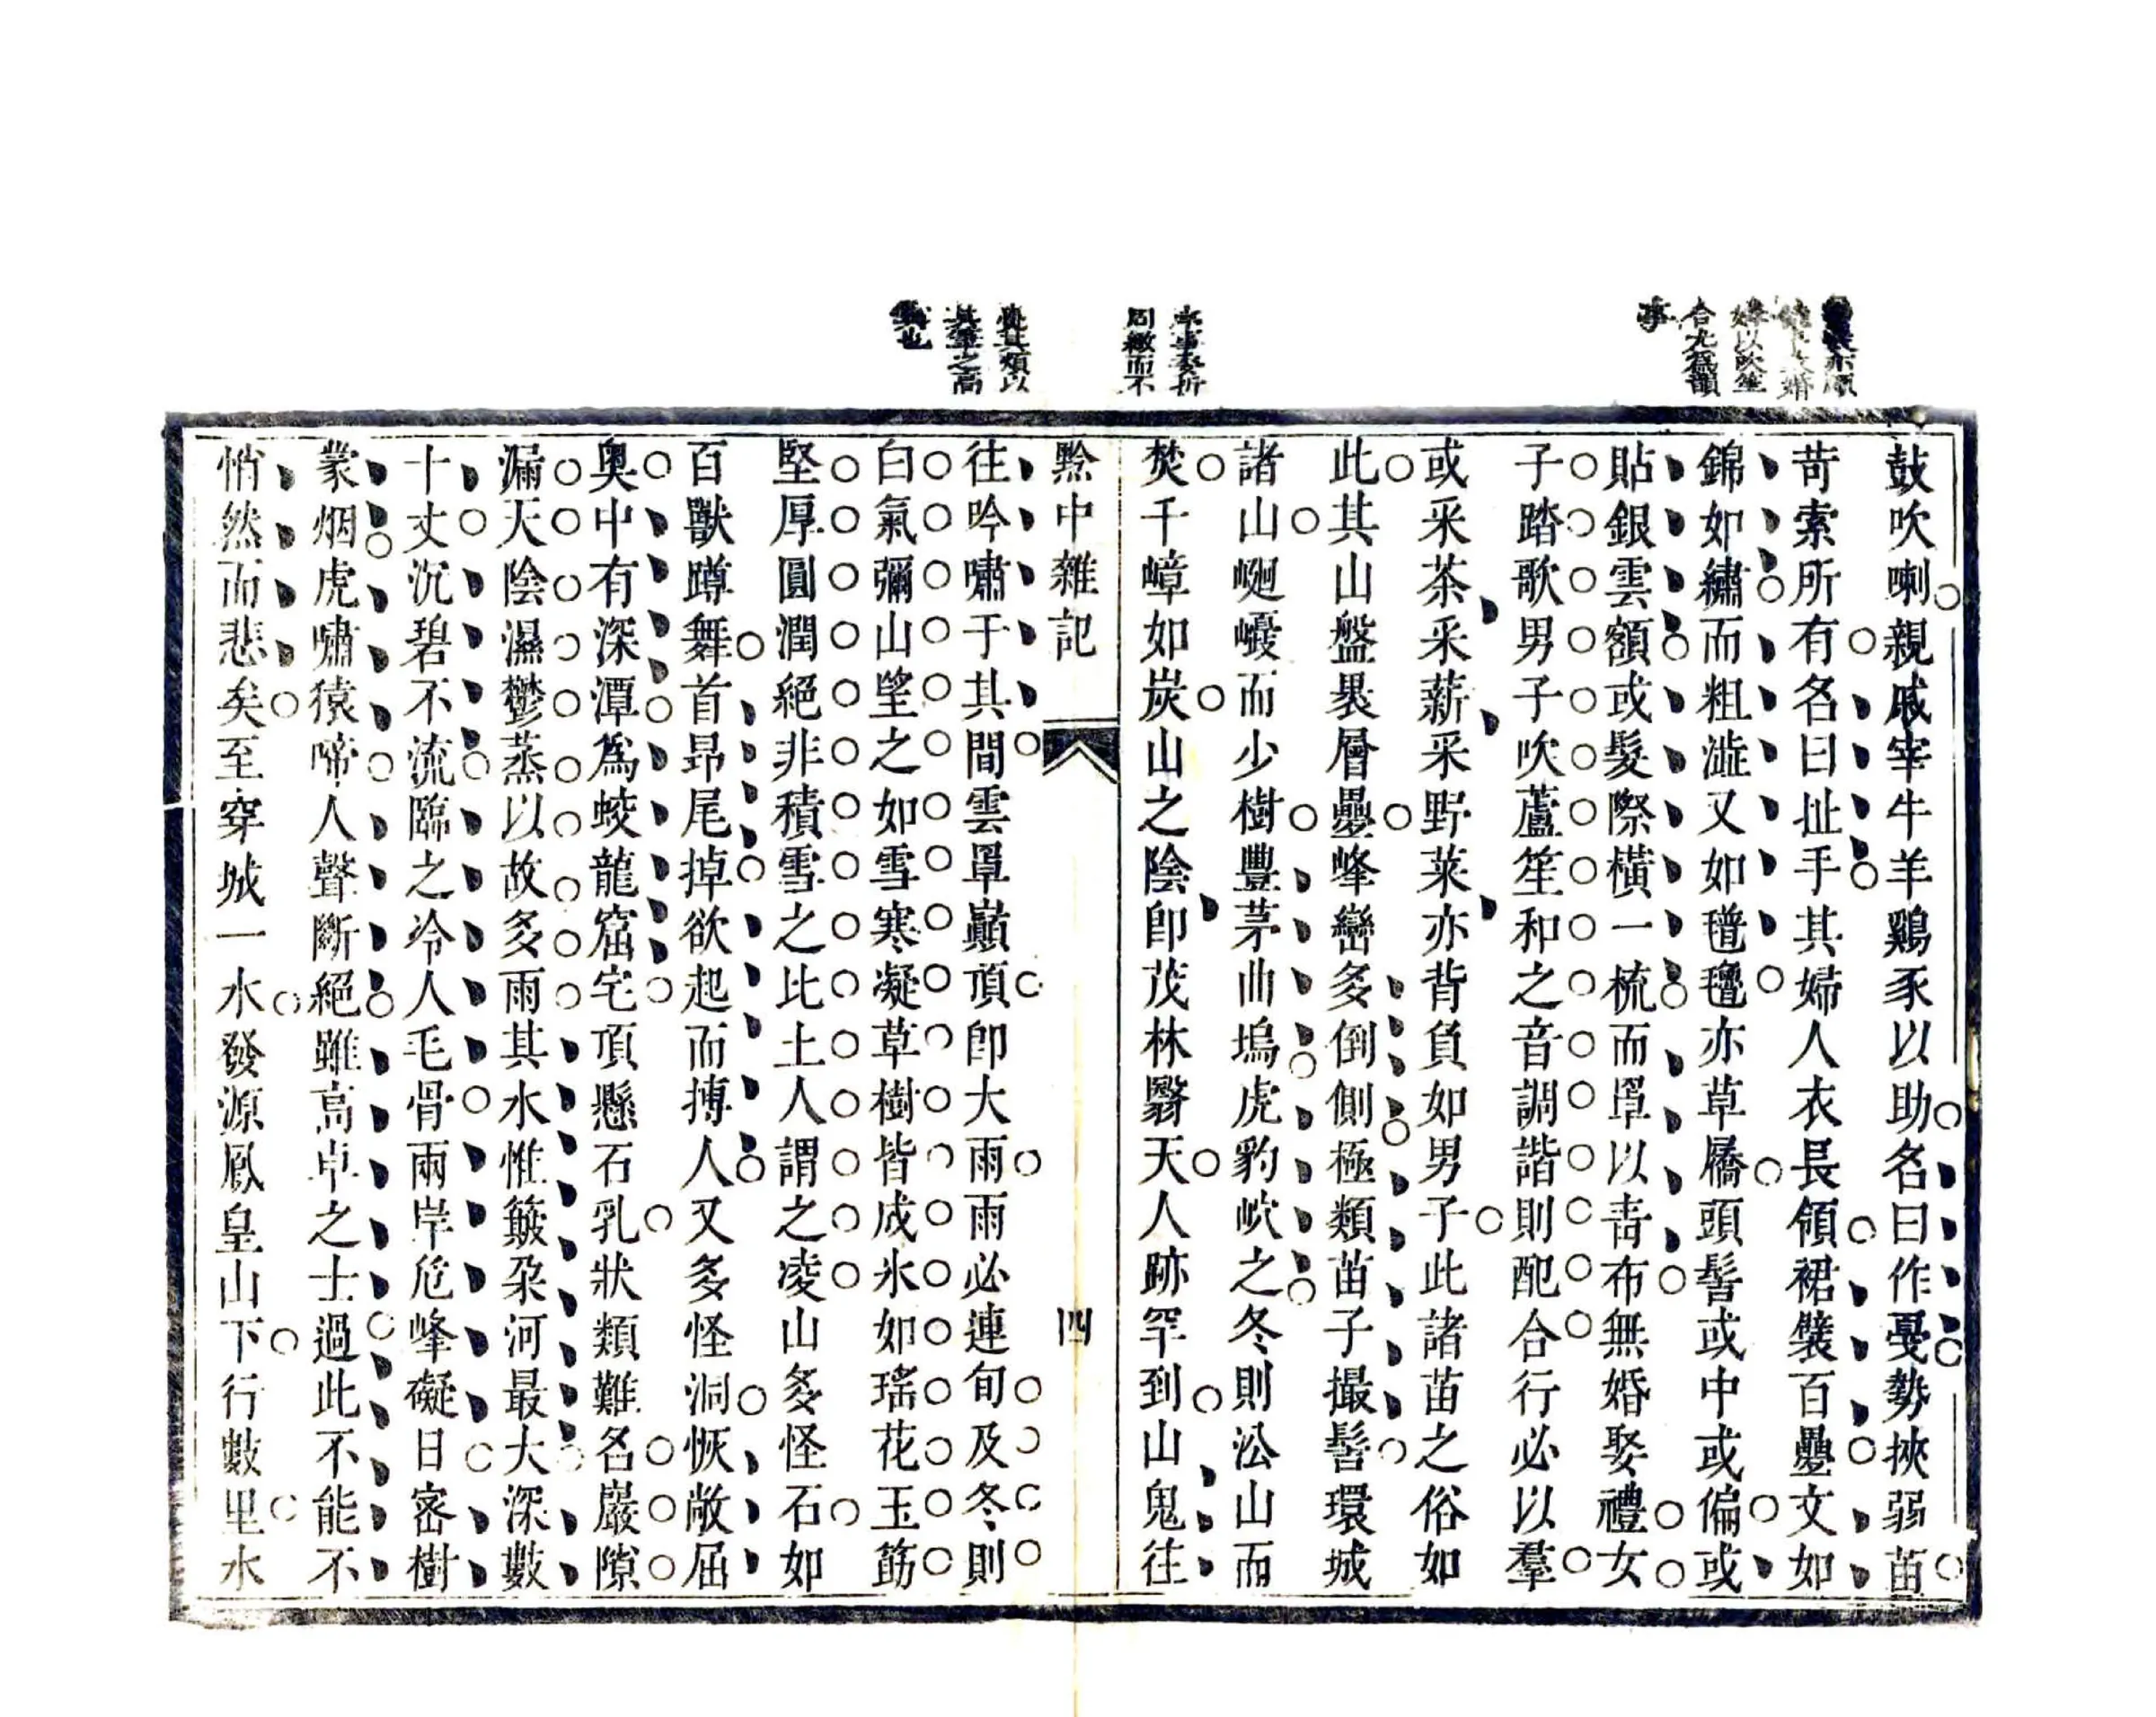 鼓吹喇親戚宰牛羊鷄豕以助名曰作戞勢挾弱苗
苛索所有名曰扯手其婦人衣長領裙襞百疊文如
錦如繡而粗澁又如氆氌亦草屩頭髻或中或偏或
貼銀雲額或髮際橫一梳而罩以靑布無婚娶禮女
子踏歌男子吹蘆笙和之音調諧則配合行必以羣
或采茶采薪采野菜亦背負如男子此諸苗之俗如
此其山盤褁層疊峰巒多倒側極類苗子撮髻環城
諸山峢巙而少樹豐茅曲塢虎豹岤之冬則㳂山而
焚千嶂如炭山之陰卽茂林翳天人跡罕到山鬼往
黔中雜記
四
往吟嘯于其間雲罩巔頂卽大雨雨必連旬及冬則
白氣彌山望之如雪寒凝草樹皆成氷如瑤花玉筯
堅厚圓潤絕非積雪之比土人謂之凌山多怪石如
百獸蹲舞首昂尾掉欲起而搏人又多怪洞恢敞屈
奧中有深潭爲蛟龍窟宅頂懸石乳狀類難名巖隙
漏天陰濕鬱蒸以故多雨其水惟簸朶河最大深數
十丈沉碧不流臨之冷人毛骨兩岸危峰礙日密樹
蒙烟虎嘯猿啼人聲斷絕雖高卓之士過此不能不
悄然而悲矣至穿城一水發源鳳皇山下行數里水
婢以吹笙
合尤爲韻
事
周緻而不
其筆之高